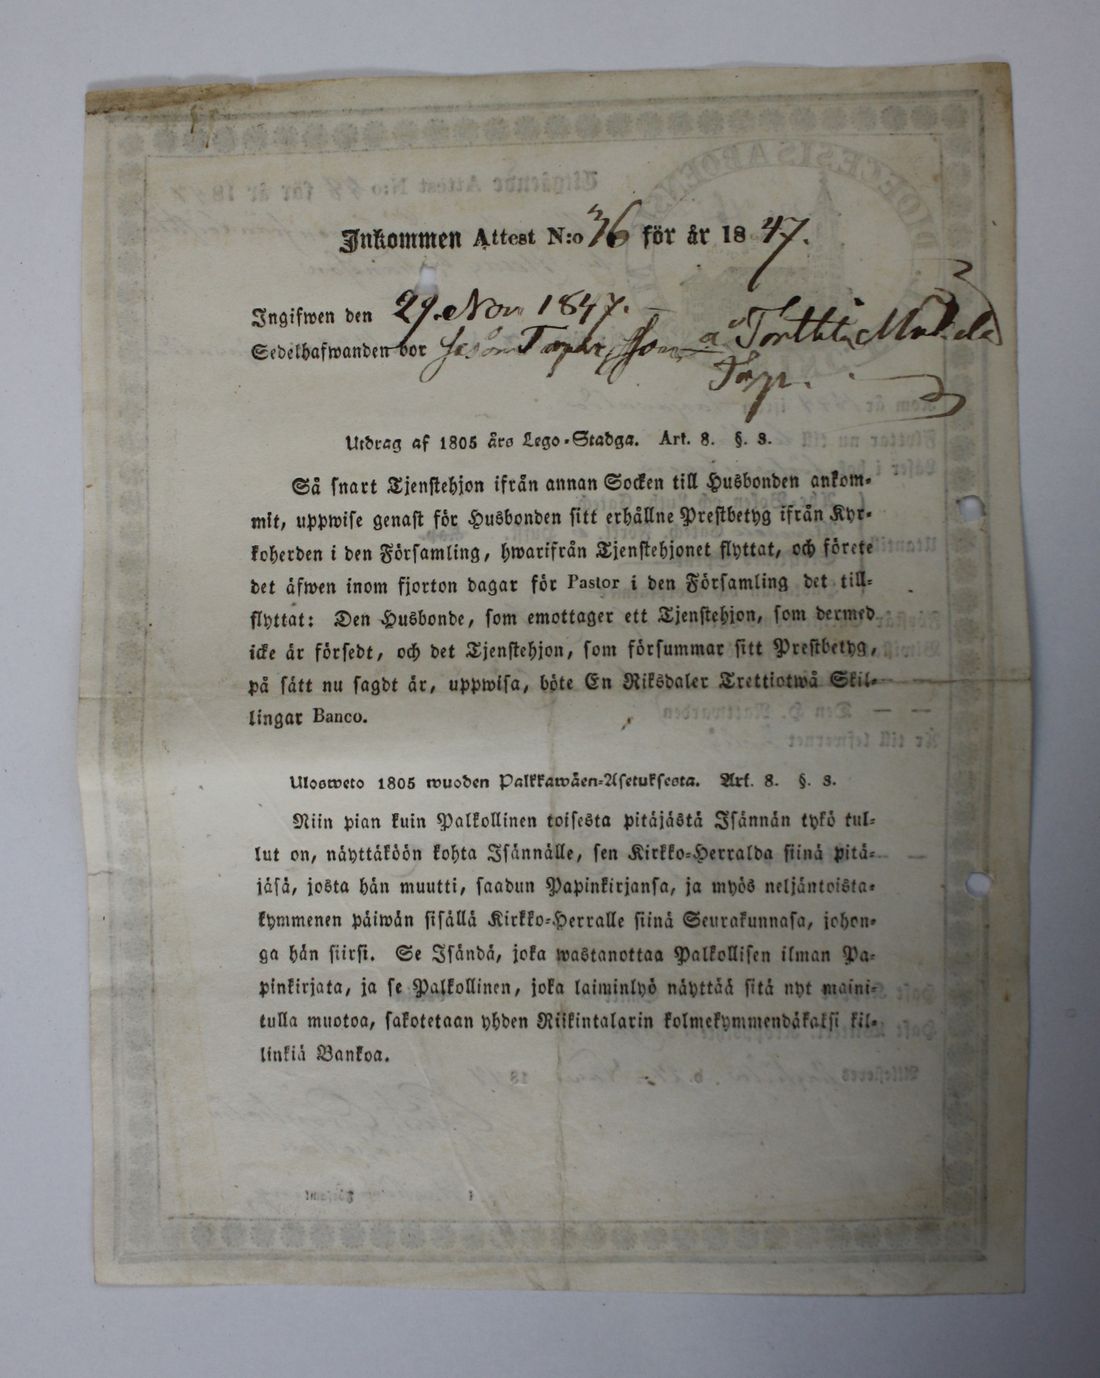 Inkommen Attest N:o 36 för år 1847.
Ingifwen den 29. Nov 1847.
Sedelhafwanden bor som å
Torp.
Utdrag af 1805 års Lego-Stadga. Art. 8. §. 3.
Så snart Tjenstehjon ifrån annan Socken till Husbonden ankom-
mit, uppwise genast för Husbonden sitt erhållne Prestbetyg ifrån Kyr-
koherden i den Församling, hwarifrån Tjenstehjonet flyttat, och förete
det äfwen inom fjorton dagar för Pastor i den Församling det till-
flyttat: Den Husbonde, som emottager ett Tjenstehjon, som dermed
icke är försedt, och det Tjenstehjon, som försummar sitt Prestbetyg,
på sätt nu sagdt är, uppwisa, böte En Riksdaler Trettiotwå Skil-
lingar Banco.
Ulosweto 1805 wuoden Palkkawäen-Asetuksesta. Art. 8. §. 3.
Niin pian kuin Palkollinen toisesta pitäjästä Isännän tykö tul-
lut on, näyttäköön kohta Isännälle, sen Kirkko-Herralda siinä pitä-
jäsä, josta hän muutti, saadun Papinkirjansa, ja myös neljäntoista-
kymmenen päiwän sisällä Kirkko-Herralle siinä Seurakunnasa, johon-
ga hän siirsi. Se Isändä, joka wastanottaa Palkollisen ilman Pa-
pinkirjata, ja se Palkollinen, joka laiminlyö näyttää sitä nyt maini-
tulla muotoa, sakotetaan yhden Riikintalarin kolmekymmendäkaksi kil-
linkiä Bankoa.